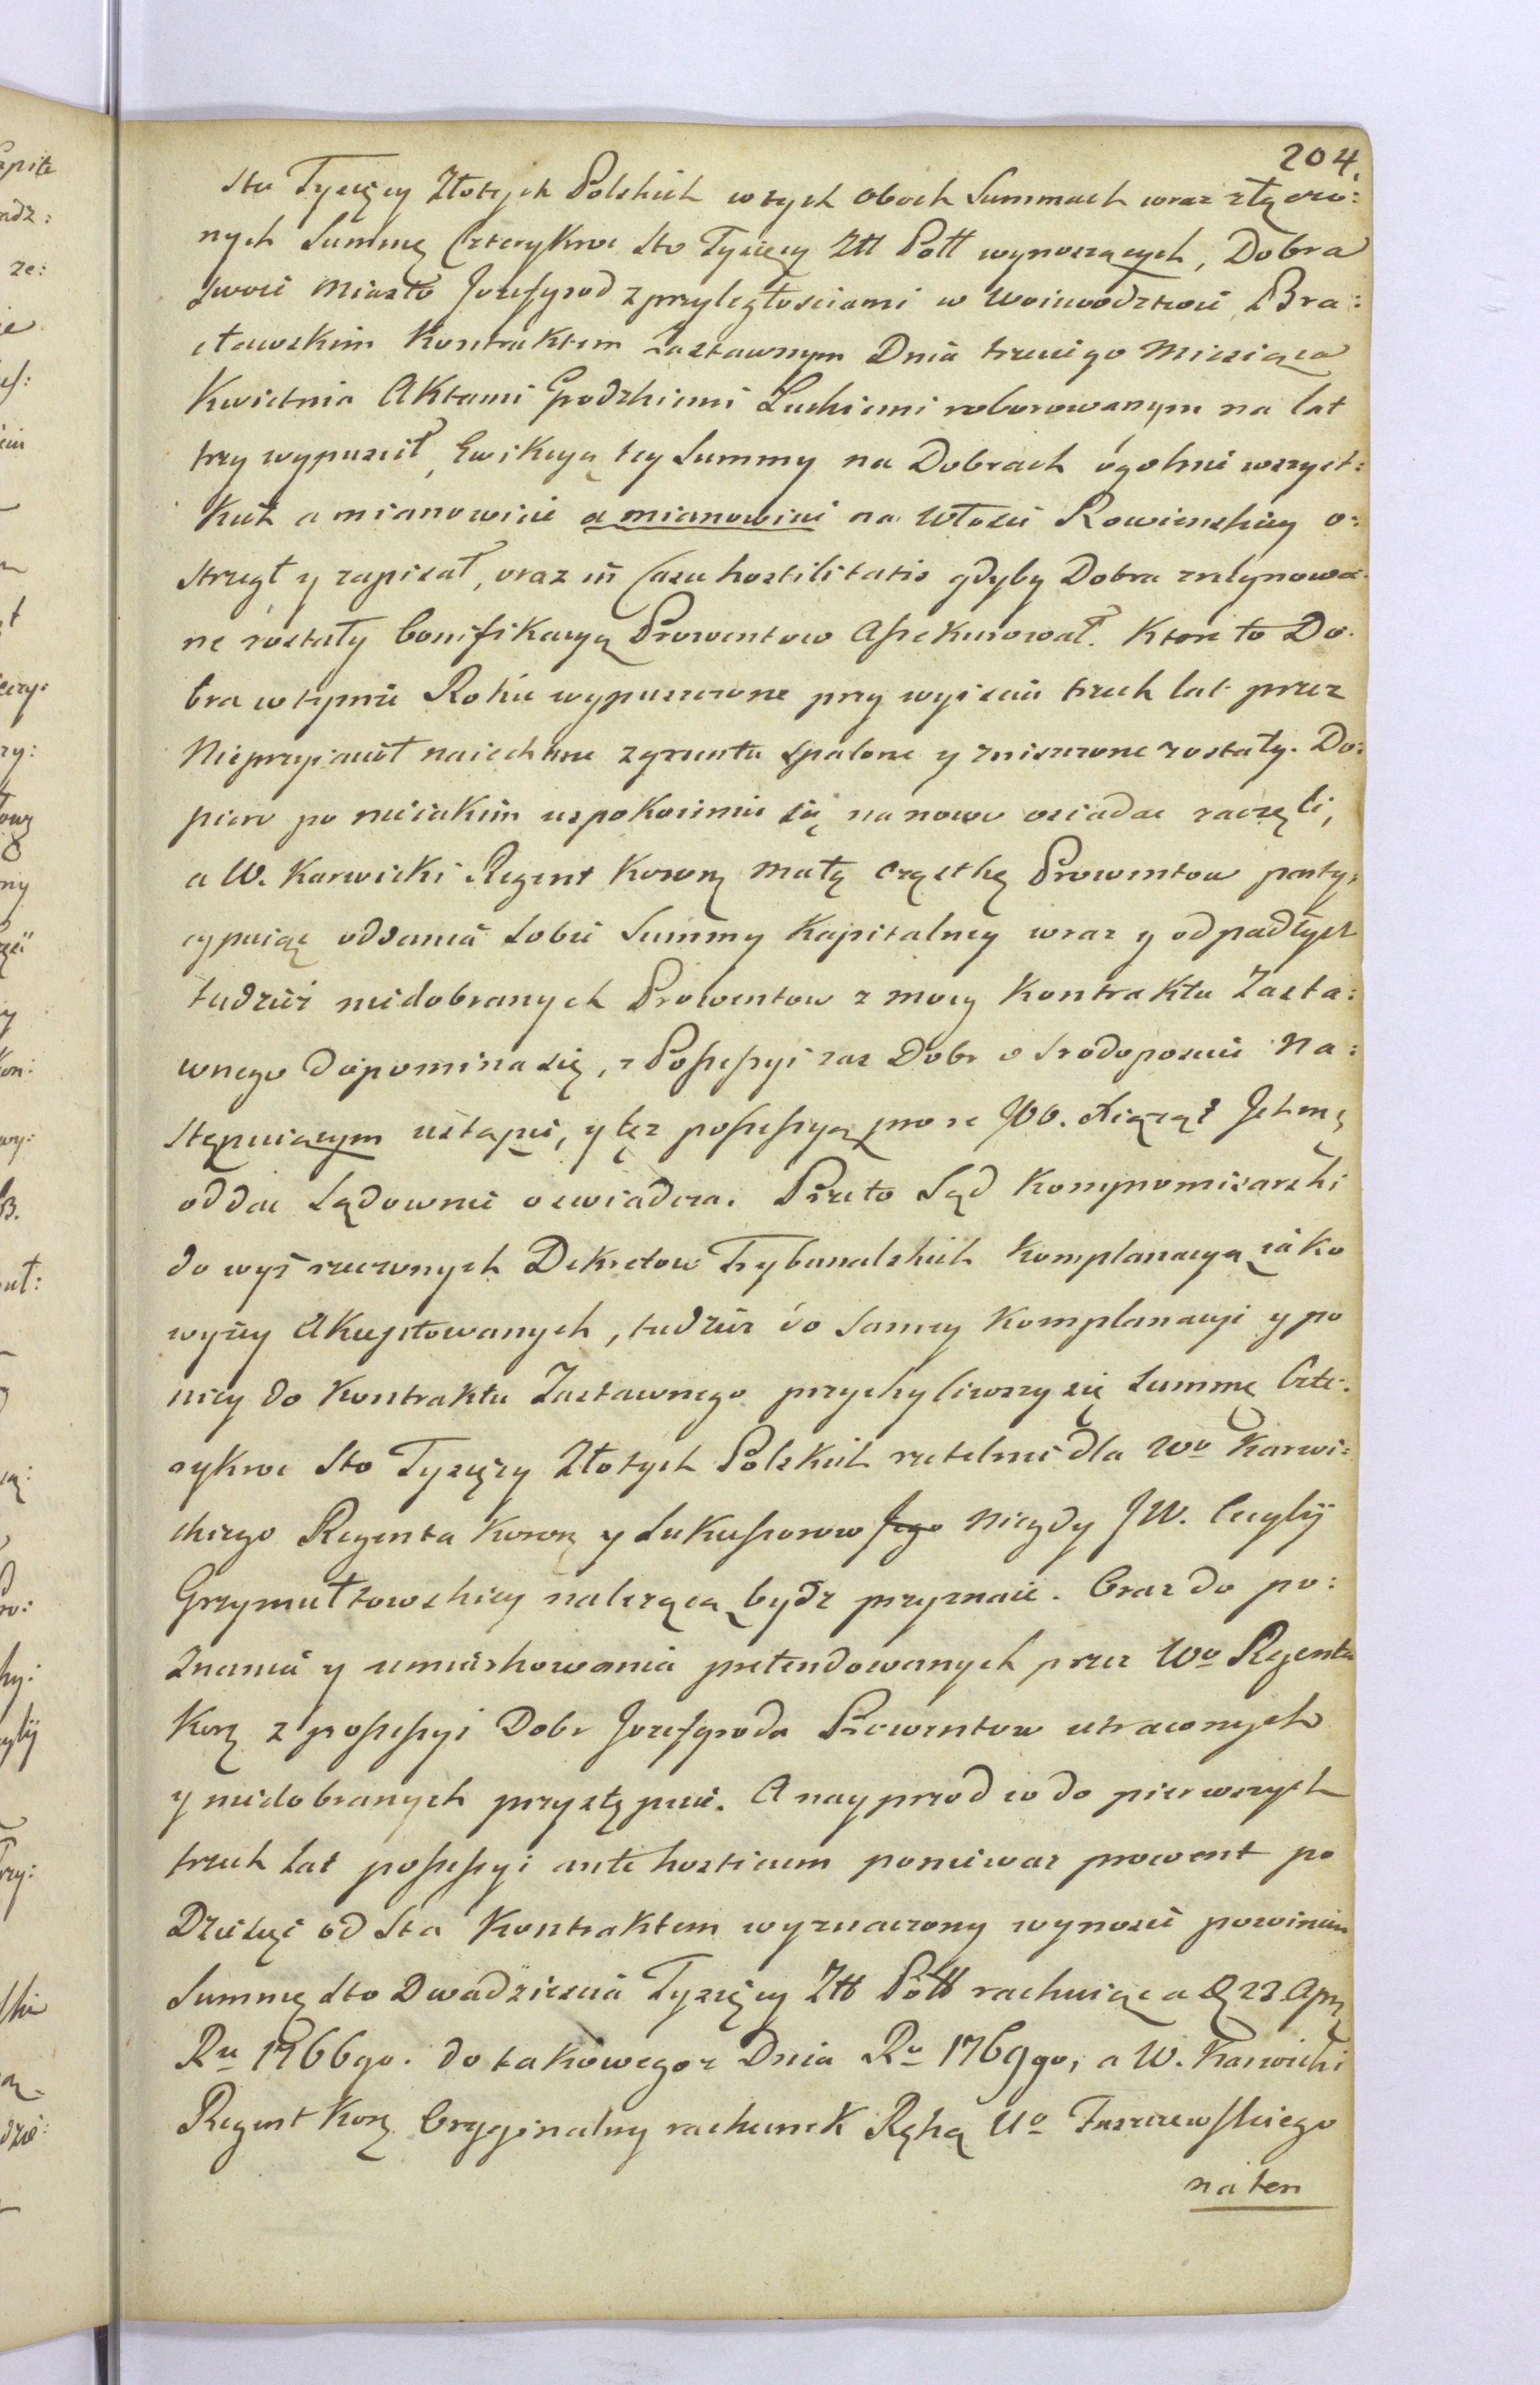 204.
Sta Tysięcy Złotych Polskich w tych oboch Summach wraz złączo:
nych Summę Czterykroc Sto Tysięcy Ztt Poll wynoszących, Dobra
swoie Miasto Jozefgrod z przyległosciami w Woiewodztwie Bra:
cławskim Kontraktem zastawnym Dnia trzeciego Miesiąca
Kwietnia Aktami Grodzkiemi Łuckiemi roborowanym na lat
trzy wypuscił, Ewikcyą tey Summy na Dobrach ogolnie wszyst:
kich a mianowicie a mianowicie na Włosci Rowienskiey o:
strzegł y zapisał, oraz in Casu hostilitatis gdyby Dobra zruynowa:
ne zostały bonifikacyą Prowentow Assekurował. Ktore to Do:
bra w tymze Roku wypuszczone przy wyisciu trzech lat przez
Nieprzyiacioł naiechane z gruntu spalone y zniszczone zostały. Do:
piero po nieiakim uspokoieniu się na nowo osiadac zaczęli,
a W. Karwicki Regent Koronę małą cząstkę Prowentow party:
cypuiąc oddania sobie Summy Kapitalney wraz y odpadłych
tudziez niedobranych Prowentow z mocy Kontraktu Zasta:
wnego dopomina się, z Possessyi zas Dobr o Srodoposciu Na:
stępuiącym ustąpic, y tęz possessyą pro se JOO. Xiąząt Jchmę
oddac Sądownie oswiadcza. Przeto Sąd Kompromisarski
do wyż rzeczonych Dekretow Trybunalskich Komplanacyą iako
wyzey Akceptowanych, tudziez do samey Komplanacyi y po
niey do Kontraktu Zastawnego przychyliwszy się Summę Czte:
rykroc Sto Tysięcy Złotych Polskich rzetelnie dla Wo Karwi:
ckiego Regenta Koronę y Sukcessorow Jego Niegdy JW. Cecylij
Grzymułtowskiey nalezącą bydz przyznaie. Oraz do po:
znania y umiarkowania pretendowanych przez Wo Regenta
Korę z possessyi Dobr Jozefgroda Prowentow utraconych
y niedobranych przystępuie. A nayprzod co do pierwszych
trzech lat possessyi ante hosticum poniewaz prowent po
Dziesięc od Sta Kontraktem wyznaczony wynosic powinien
Summę Sto Dwadziescia Tysięcy Ztt Poll rachuiąc a D 23 Aprę
Ru 1766go. do takowegoz Dnia Ro 1769go, a W. Karwicki
Regent Korę Oryginalny rachunek Ręką Uo Faszczewskiego
na ten